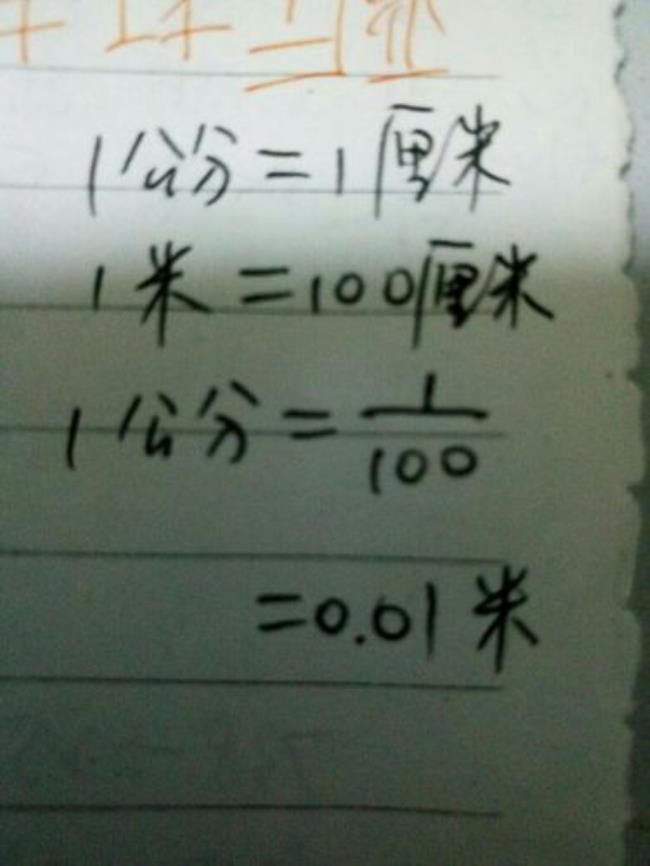 1公分=1厘米
1米=100厘米
1公分=1/100
=0.01米